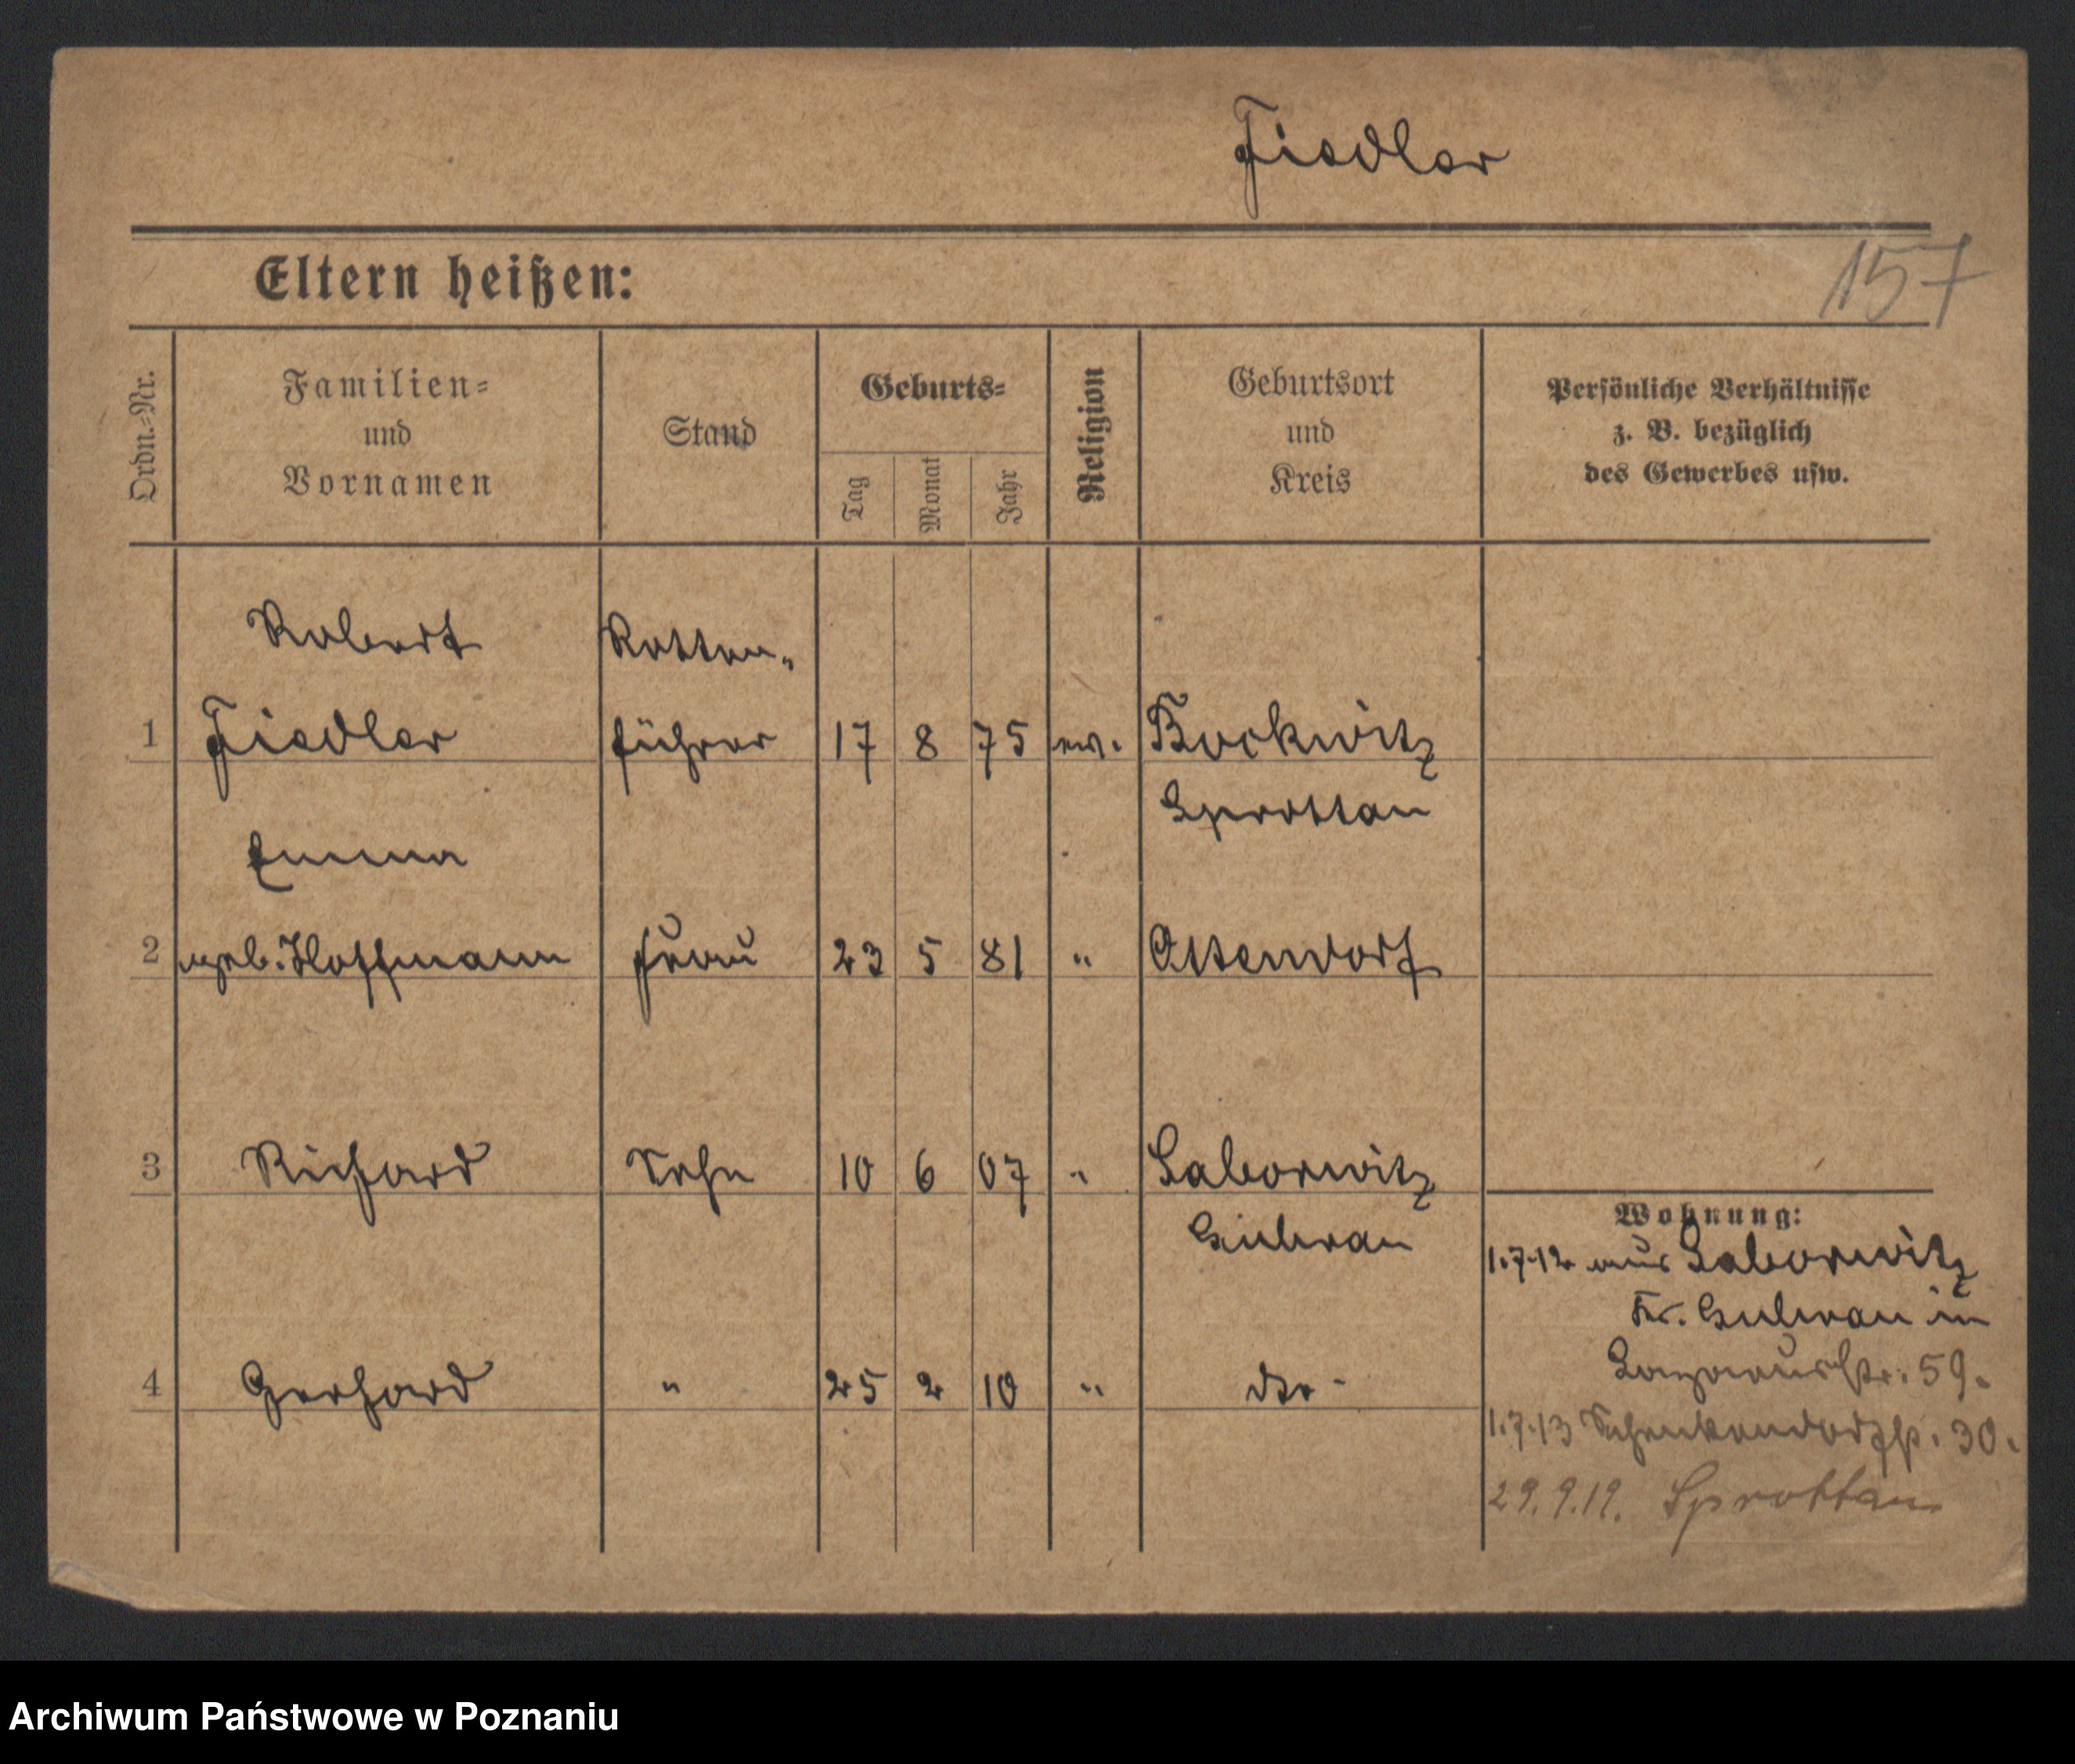 Fiedler
157
Eltern heißen:
Ordn.=Nr.
Familien=
und
Vornamen
Stand
Geburts=
Tag
Monat
Jahr
Religion
Geburtsort
und
Kreis
Persönliche Verhältnisse
z. B. bezüglich
des Gewerbes usw.
Robert Rotten=
1 Fiedler führer 17 8 75 ev. Bockwitz
Sprottau
Emma
2 geb. Hoffmann Frau 23 5 81 " Ottendorf
3 Richard Sohn 10 6 07 " Saborwitz
Guhrau
4 Gerhard " 25 2 10 " dto -
Wohnung:
1.7.12 aus Saborwitz
Kr. Guhrau in
Lazarusstr. 59.
1.7.13 Schenkendorfstr. 30.
29.9.19. Sprottau
Archiwum Państwowe w Poznaniu